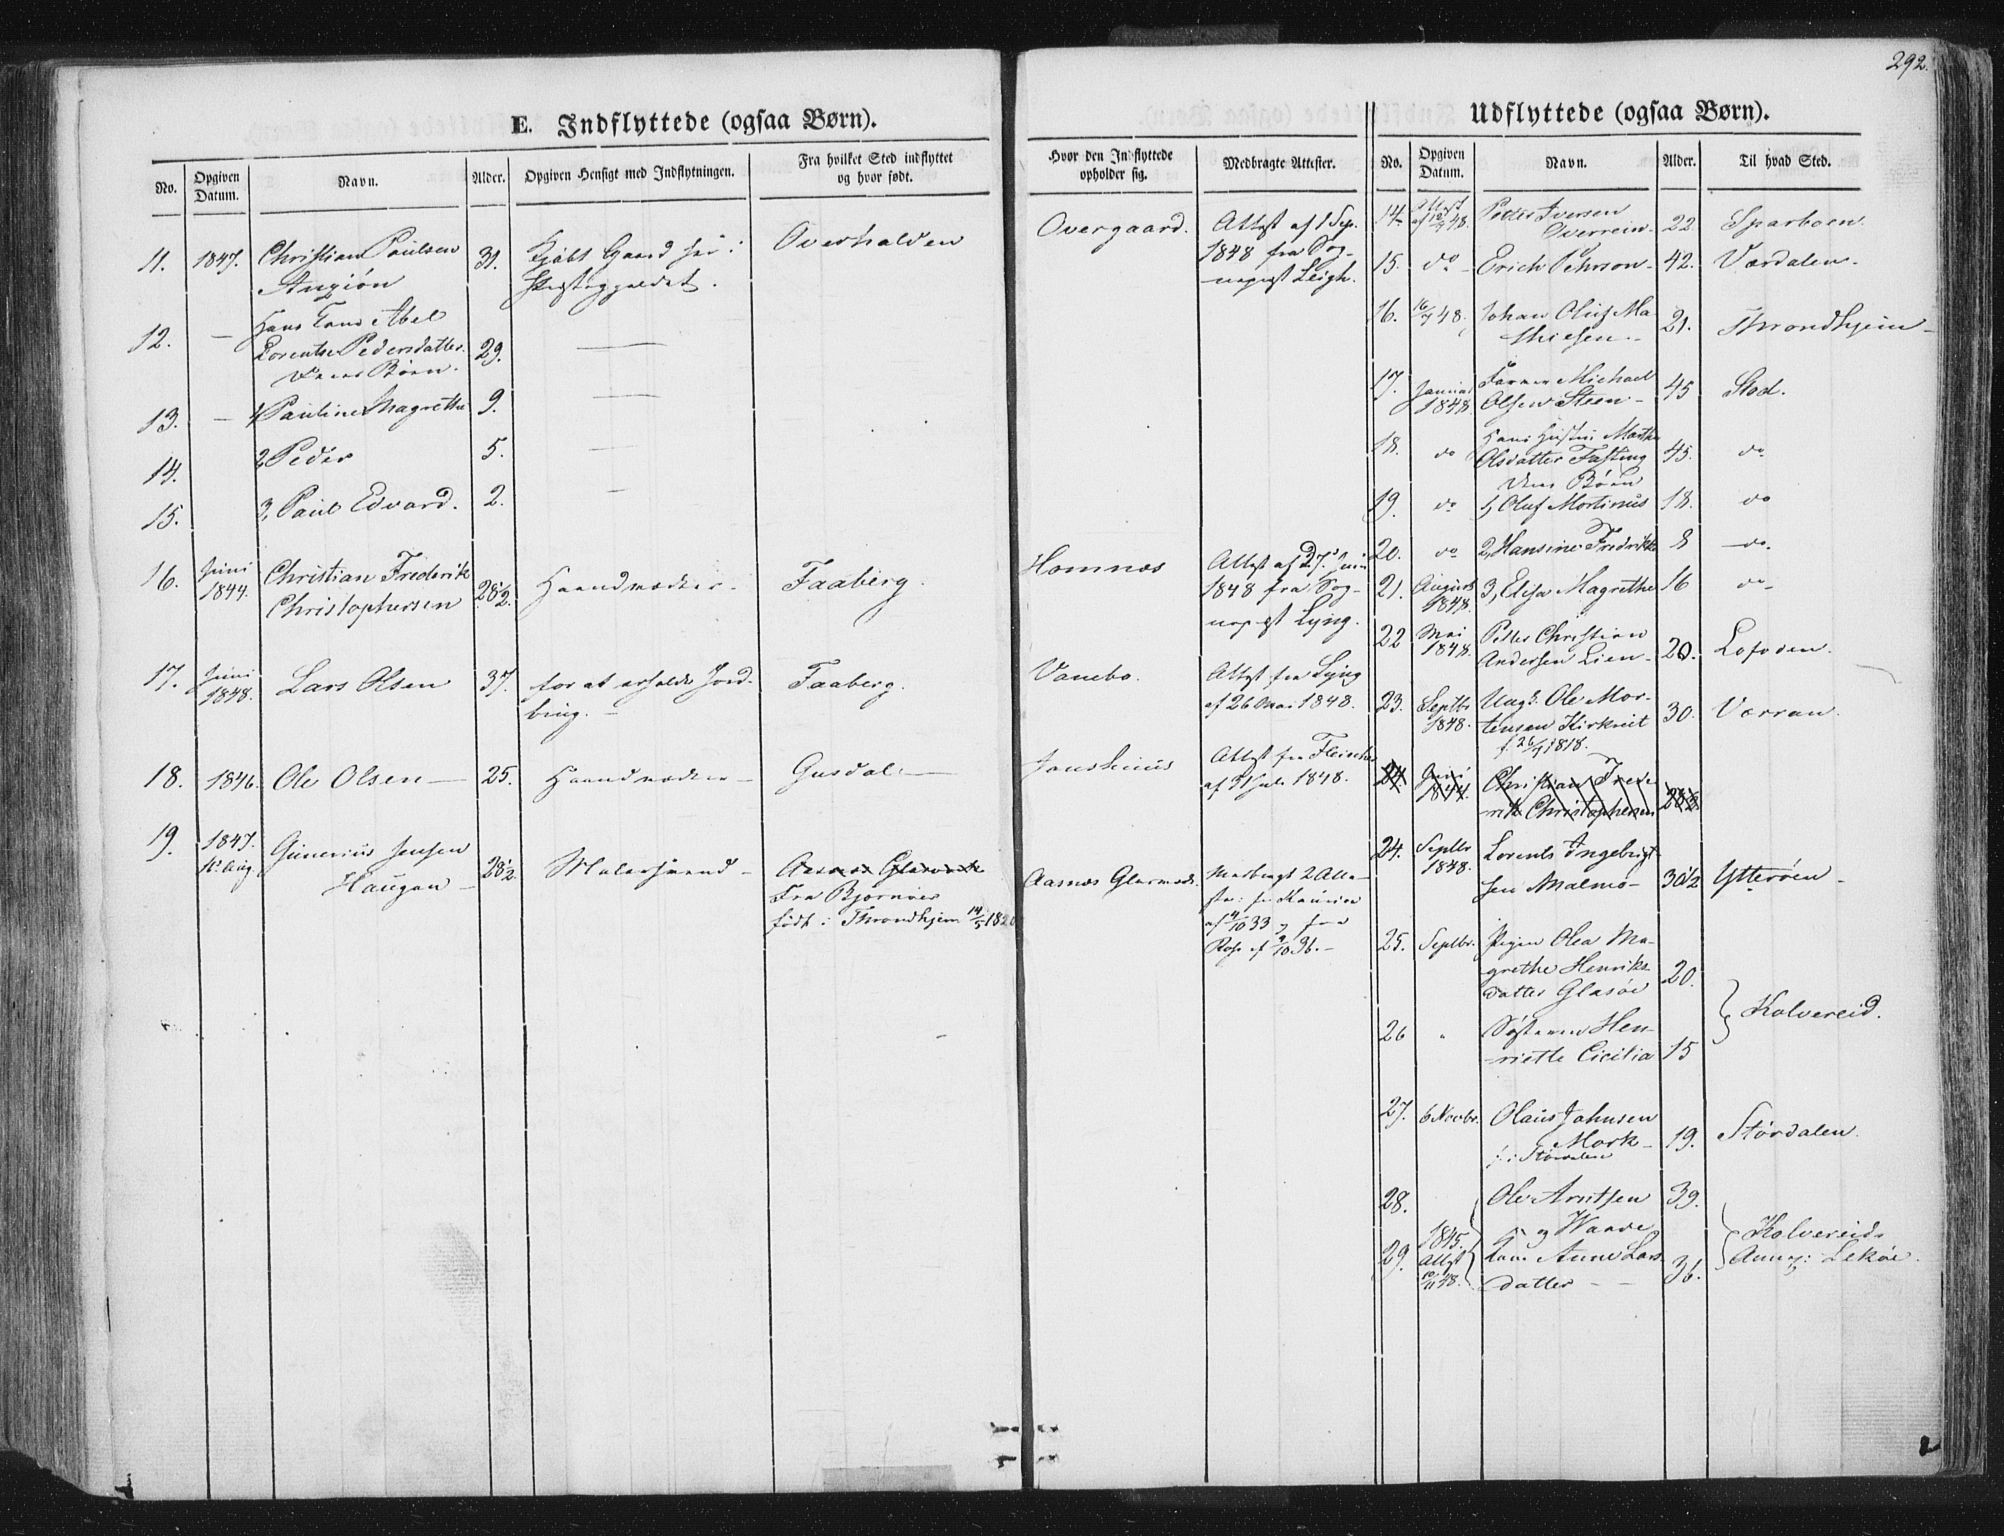 292.
E. Indflyttede (ogsaa Børn).
No.
Opgiven Datum.
Navn.
Alder.
Opgiven Hensigt med Indflytningen.
Fra hvilket Sted indflyttet og hvor født.
Hvor den Indflyttede opholder sig.
Medbragte Attester.
11. 1847. Christian Paulsen 31. Kjøbt Gaard her i Overhalden Overgaard. Attest af 1 Sep.
1848 fra Sog-
12. — Hans Kone Abel
Lorentse Pedersdatter 29. —
deres Børn.
13. — 1, Pauline Magrethe 9. —
14. 2, Peder 5. —
15. 3, Paul Edvard. 2. —
16. Juni 1844. Christian Frederik 28½. Haandværker. Faaberg. Homnæs Attest af 27. Juni
Christophersen 1848 fra Sog-
17. Juni 1848. Lars Olsen 37. for at erholde Jord- Faaberg. Vanebo. Attest fra
af 26 Mai 1848.
18. 1846. Ole Olsen — 25. Haandværker — Gusdal — Attest fra Fleischer
af 31 Juli 1848.
19. 1847. Gunerius Jensen 28½. Malersvend — Aasnæs Glasværk Aasnes Glasværk. Medbragt 2 Atte-
Haugan — Fra Bjørnøer
født i Throndhjem 14/5 af 4/10 33 og fra
af 9/10 36. —
Udflyttede (ogsaa Børn).
No.
Opgiven Datum.
Navn.
Alder.
Til hvad Sted.
14. Attest af 12/7 48. Peder Iversen
Overrein 22. Sparboen.
15. do Erich Pehrson 42. Værdalen.
16. 16/7 48. Johan Oluf Ma-
thiesen. 21. Throndhjem —
17. Januar 1848. Michael
Olsen Steen — 45 Stod.
18. do Hans Hustru Martha
Olsdatter Fasting 45. do
deres Børn
19. do 1, Oluf Mortinus 18. do
20. do 2, Hansine Fredrikke 8 do
21. August 1848. 3, Elisa Magrethe 16 do
22 Mai 1848. Petter Christian
Andersen Lien — 20. Lofoden.
23. Septbr 1848. Ungk. Ole Mor-
tensen Kirkreit 30. Værran.
f. 26/7 1818.
24. Juni 1844. Christian Frede-
rik Christophersen 28½
24. Septbr 1848. Lorents Ingebrigt-
sen Malmo — 30½ Ytterøen —
25. Septbr. Pigen Olea Ma-
grethe Henriks-
datter Glasøe 20. Kolvereid.
26 " Søsteren Hen-
riette Cicilia 15
27. 6 Novbr. Olaus Johnsen
Mork — 19. Størdalen.
f. i Størdalen
28. Ole Arntsen 39.
1845. Attest 10/11 48. Kolvereids
29. Kone Anne Lars- Annex: Lekøe.
datter — — 36.